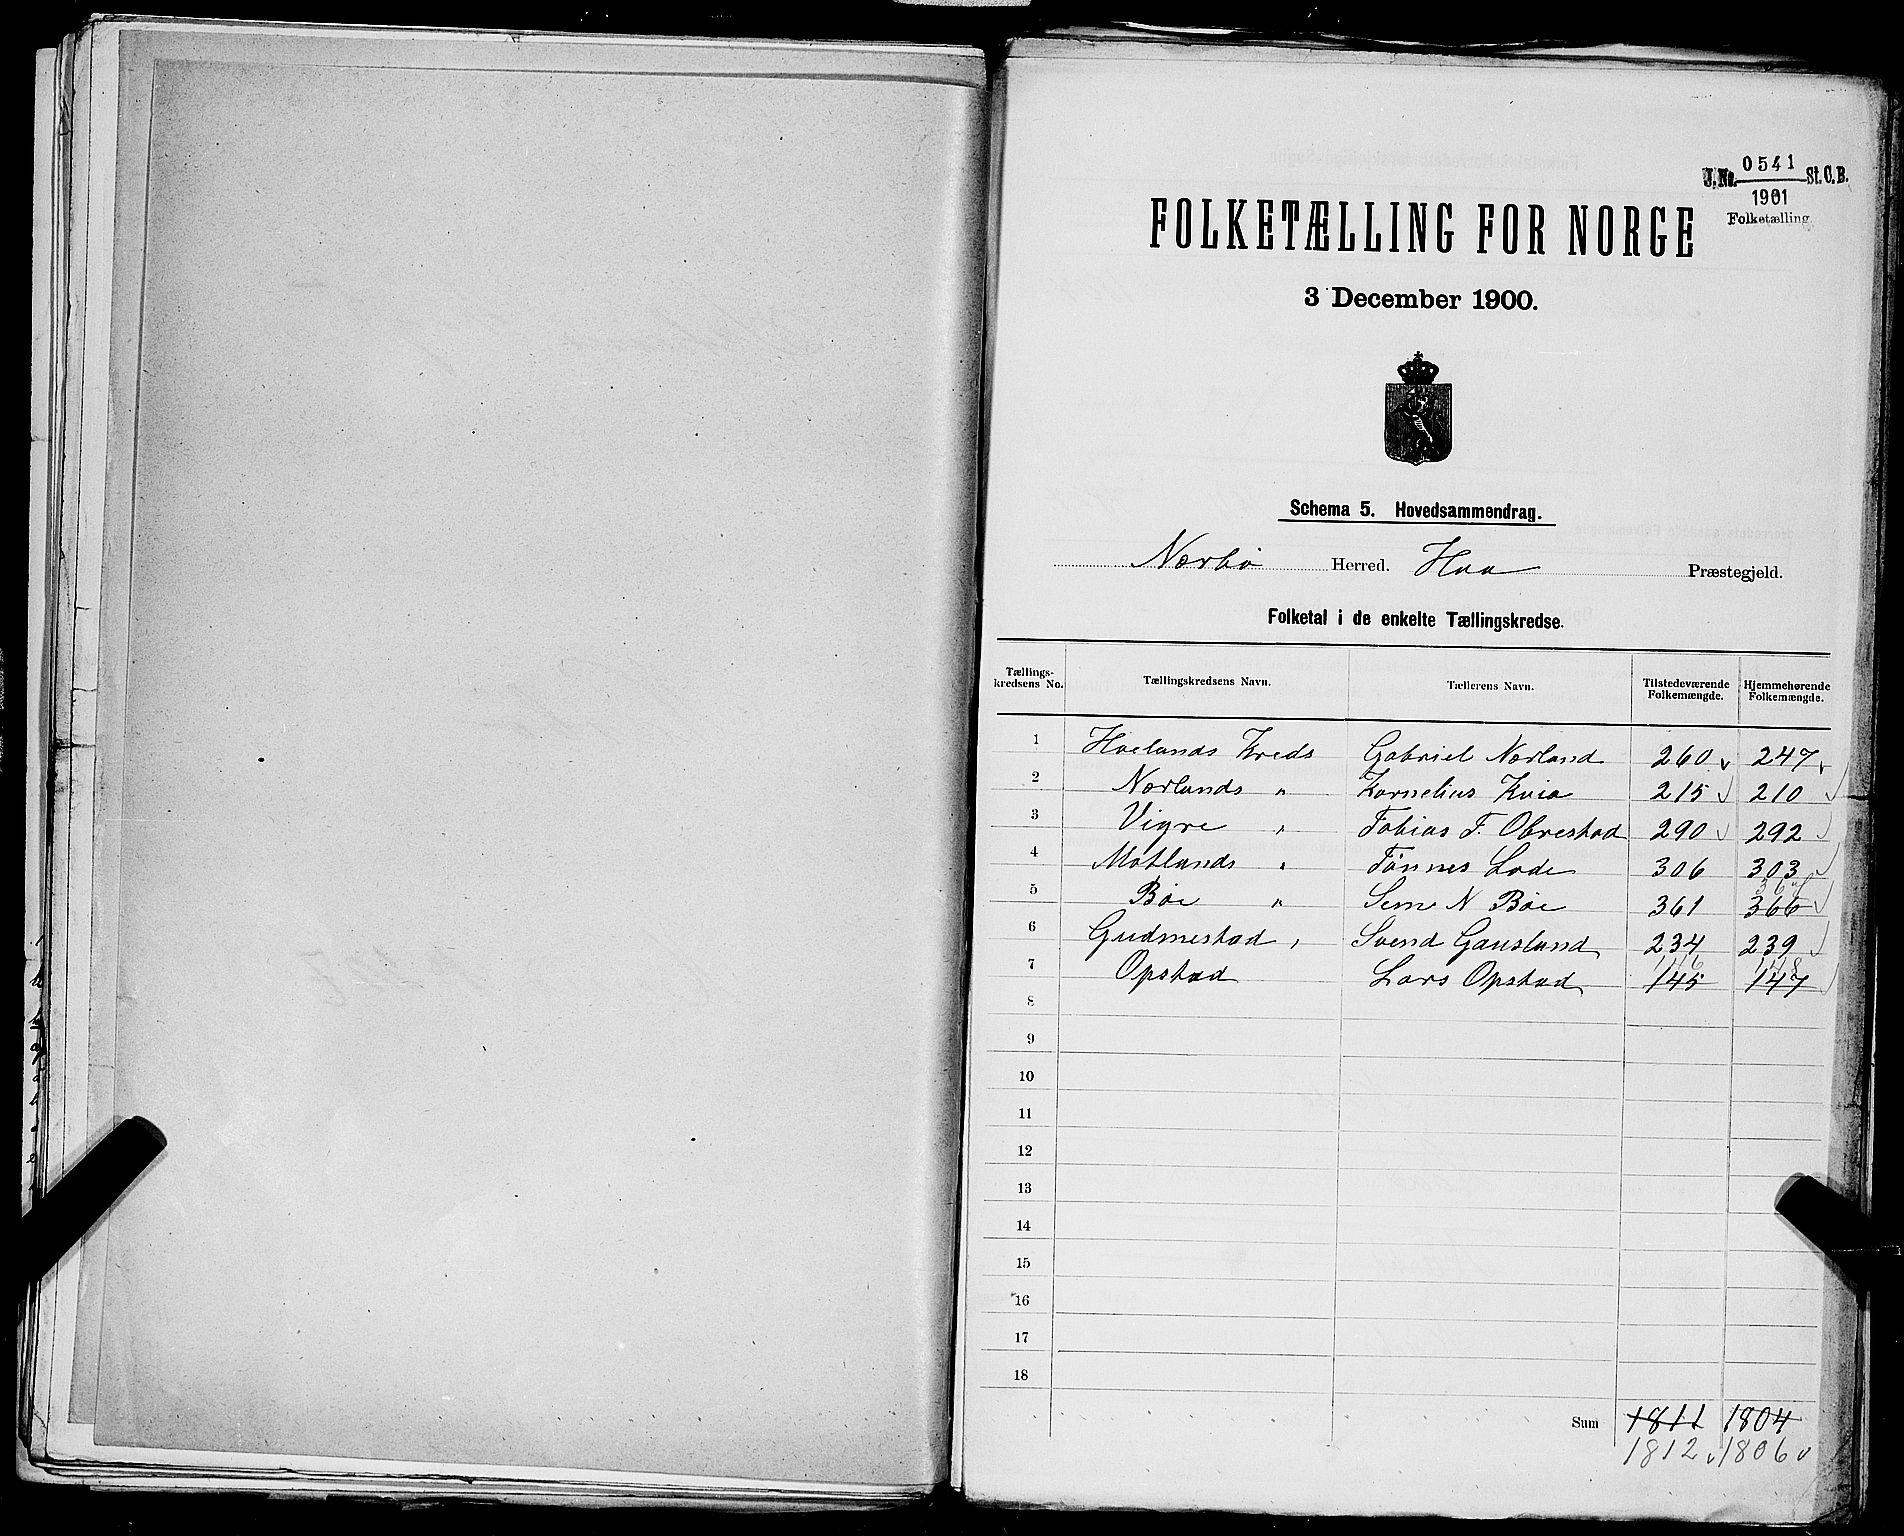 J. No. 0541 St. C. B.
1901
Folketælling
FOLKETÆLLING FOR NORGE
3 December 1900.
Schema 5. Hovedsammendrag.
Nærbø Herred. Haa Præstegjeld.
Folketal i de enkelte Tællingskredse.
Tællings-kredsens No. Tællingskredsens Navn. Tællerens Navn. Tilstedeværende Folkemængde. Hjemmehørende Folkemængde.
1 Høelands Kreds Gabriel Nærland 260 247
2 Nærlands " Kornelius Kvia 215 210
3 Vigre " Tobias T. Obrestad 290 292
4 Motlands " Tønnes Lode 306 303
5 Bøe " N Bøe 361 366
6 Gudmestad " Svend Gausland 234 239
146 148
7 Opstad Lars Opstad 145 147
8
9
10
11
12
13
14
15
16
17
18
Sum 1811 1804
1812 1806